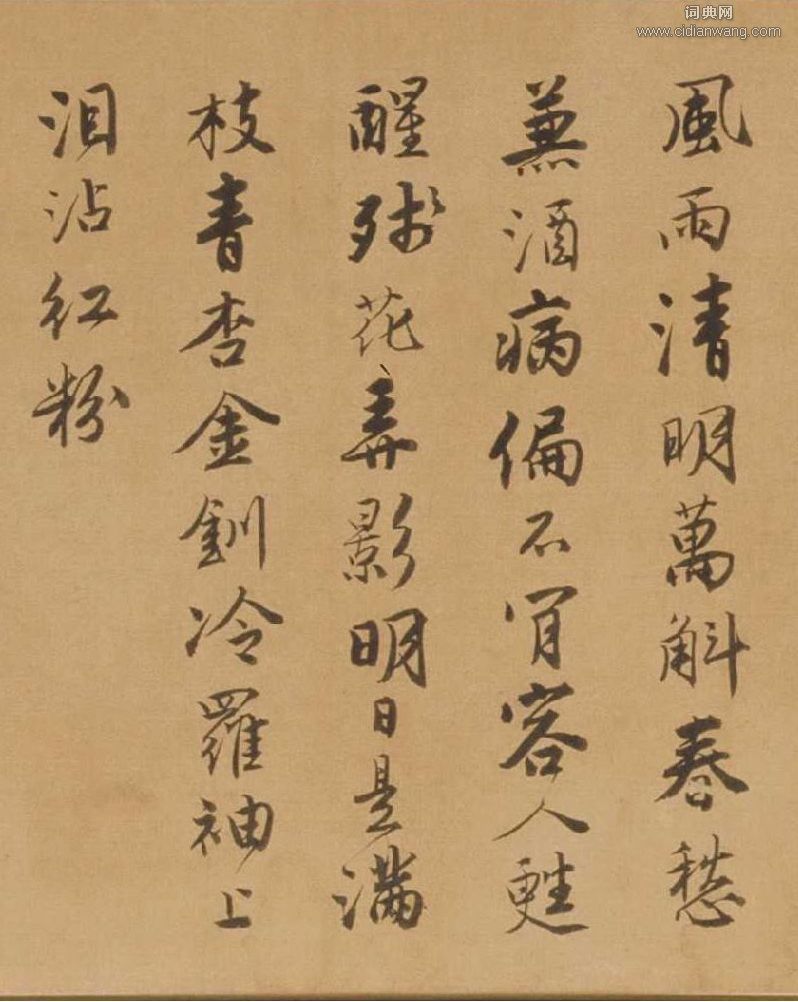 词典网
www.cidianwang.com
風雨清明萬斛春愁
兼酒病偏不肎容人甦
醒殘花弄影明日是滿
枝青杏金釧冷羅袖上
泪沾紅粉